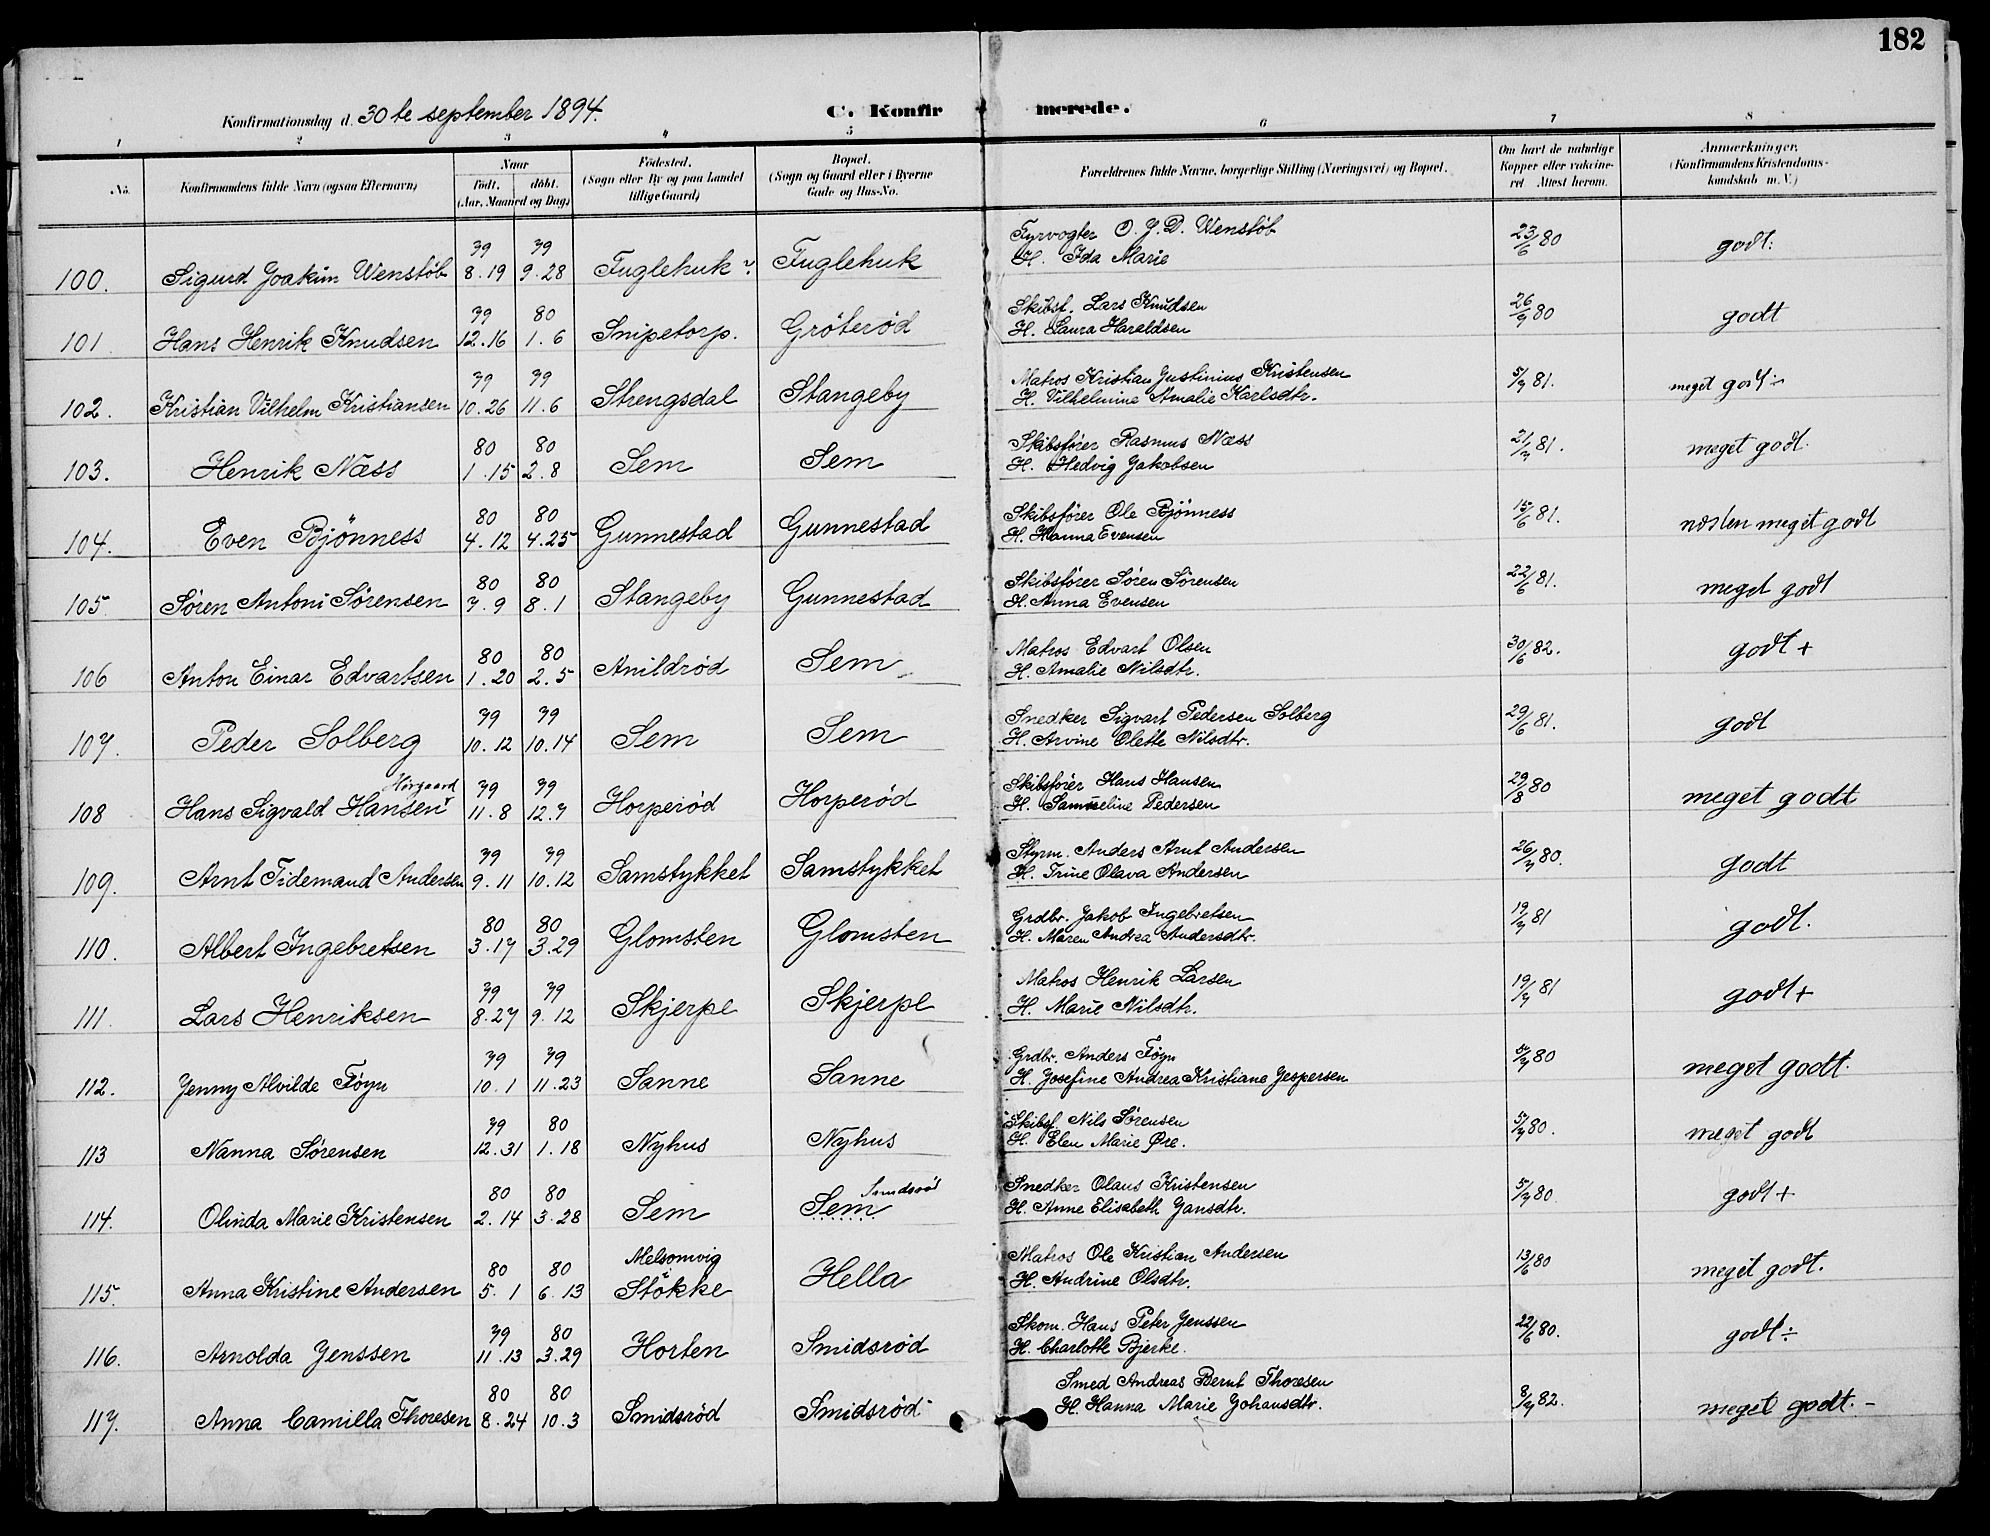 182
Konfirmationsdag d. 30te september 1894. C. Konfirmerede.
1 2 3 4 5 6 7 8
No. Konfirmandens fulde Navn (ogsaa Efternavn) Naar født. døbt. (Aar, Maaned og Dag) Fødested. (Sogn eller By og paa Landet tillige Gaard) Bopæl. (Sogn og Gaard eller i Byerne Gade og Hus-No. Forældrenes fulde Navne, borgerlige Stilling (Næringsvei) og Bopæl. Om havt de naturlige Kopper eller vakcineret Attest herom. Anmærkninger, (Konfirmandens Kristendomskundskab m. V.)
79 79 Fyrvogter O. J. D. Wenstöb
100. Sigurd Joakim Wenstöb 8.19 9.28 Fuglehuk? Fuglehuk H. Ida Marie 23/6 80 godt.
79 80 Skibsf. Lars Knudsen
101 Hans Henrik Knudsen 12.16 1.6 Snipetorp. Gröteröd H. Laura Haraldsen 26/7 80 godt
79 79 Matros Kristian Justinius Kristensen
102. Kristian Vilhelm Kristiansen 10.26 11.6 Strengsdal Stangeby H. Vilhelmine Amalie Karlsdtr. 5/7 81. meget godt ÷
80 80 Skibsfører Rasmus Næss
103. Henrik Næss 1.15 2.8 Sem Sem H. Hedvig Jakobsen 21/7 81. meget godt.
80 80 Skibsfører Ole Bjönness
104. Even Bjönness 4.12 4.25 Gunnestad Gunnestad H. Hanna Evensen 15/6 81. næsten meget godt
80 80 Skibsfører Søren Sørensen
105. Søren Antoni Sørensen 7.9 8.1 Stangeby Gunnestad H. Anna Evensen 22/6 81. meget godt
80 80 Matros Edvart Olsen
106 Anton Einar Edvartsen 1.20 2.5 Anildrød Sem H. Amalie Nilsdtr. 30/6 82. godt +
79 79 Snedker Sigvart Pedersen Solberg
107. Peder Solberg 10.12 10.14 Sem Sem H. Arvine Olette Nilsdtr. 29/6 81. godt
79 79 Skibsfører Hans Hansen
108 Hans Sigvald Hansen 11.8 12.7 Horperød Horperød H. Samueline Pedersen 29/8 80 meget godt
79 79 Styrm. Anders Arnt Andersen
109. Arnt Tidemand Andersen 9.11 10.12 Samstykket Samstykket H. Trine Olava Andersen 26/7 80. godt
80 80 Grdbr. Jakob Ingebretsen
110. Albert Ingebretsen 3.17 3.29 Glomsten Glomsten H. Maren Andrea Andersdtr. 19/7 81 godt.
79 79 Matros Henrik Larsen
111. Lars Henriksen 8.27 9.12 Skjerpe Skjerpe H. Marie Nilsdtr. 19/7 81 godt +
79 79 Grdbr. Anders Føyn
112. Jenny Alvilde Føyn 10.1 11.23 Sanne Sanne H. Josefine Andrea Kristiane Jespersen 5/7 80 meget godt.
79 80 Skibsf. Nils Sørensen
113 Nanna Sørensen 12.31 1.18 Nyhus Nyhus H. Elen Marie Øre. 5/7 80. meget godt
80 80 Smidsrød Snedker Olaus Kristensen
114. Olinda Marie Kristensen 2.14 3.28 Sem Sem H. Anne Elisabeth Jansdtr. 5/7 80. godt +
80 80 Melsomvig Matros Ole Kristian Andersen
115. Anna Kristine Andersen 5.1 6.13 i Stokke Hella H. Andrine Olsdtr. 13/6 80 meget godt.
79 80 Skom. Hans Peter Jenssen
116. Arnolda Jenssen 11.13 3.29 Horten Smidsrød H. Charlotte Bjerke. 22/6 80. godt ÷
80 80 Smed Andreas Bernt Thoresen
117. Anna Camilla Thoresen 8.24 10.3 Smidsröd Smidsröd H. Hanna Marie Johansdtr. 8/7 82. meget godt. -